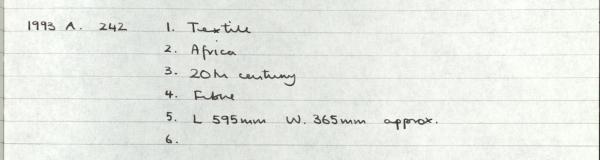 1993 A. 242 1. Textile
2. Africa
3. 20th century
4. Fibre
5. L 595mm W. 365mm approx.
6.